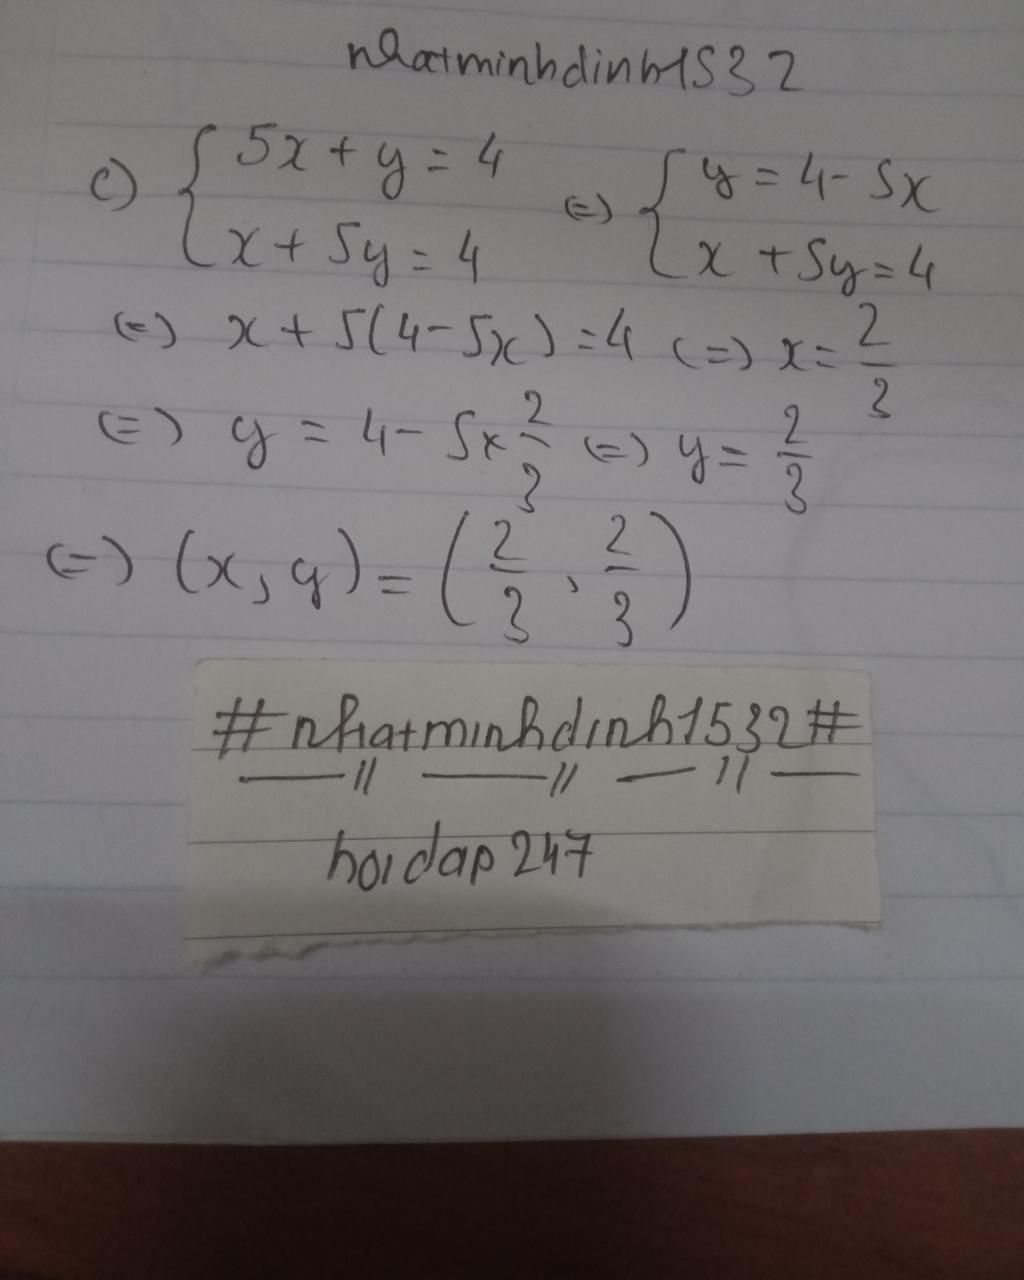 nhatminhdinh1532
c) { 5x + y = 4 (=) { y = 4 - 5x
x + 5y = 4 x + 5y = 4
(=) x + 5(4 - 5x) = 4 (=) x = 2/3
(=) y = 4 - 5x 2/3 (=) y = 2/3
(=) (x, y) = (2/3, 2/3)
#nhatminhdinh1532#
hoidap247